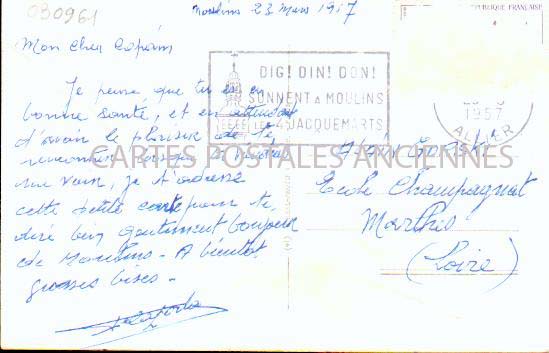 030961
Moulins 23 Mars 1957
RÉPUBLIQUE FRANÇAISE
Mon Cher Copain
DIG! DIN! DON!
SONNENT A MOULINS
LES 4 JACQUEMARTS
1957
ALLIER
Je pense que tu es en
bonne santé, et en attendant
d'avoir le plaisir de te
rencontrer
me voir, je t'adresse
cette petite carte pour te
dire bien gentiment bonjour
de Moulins - A bientôt
grosses bises -
CARTES POSTALES ANCIENNES
Ecole Champagnat
Marlhes
(Loire)